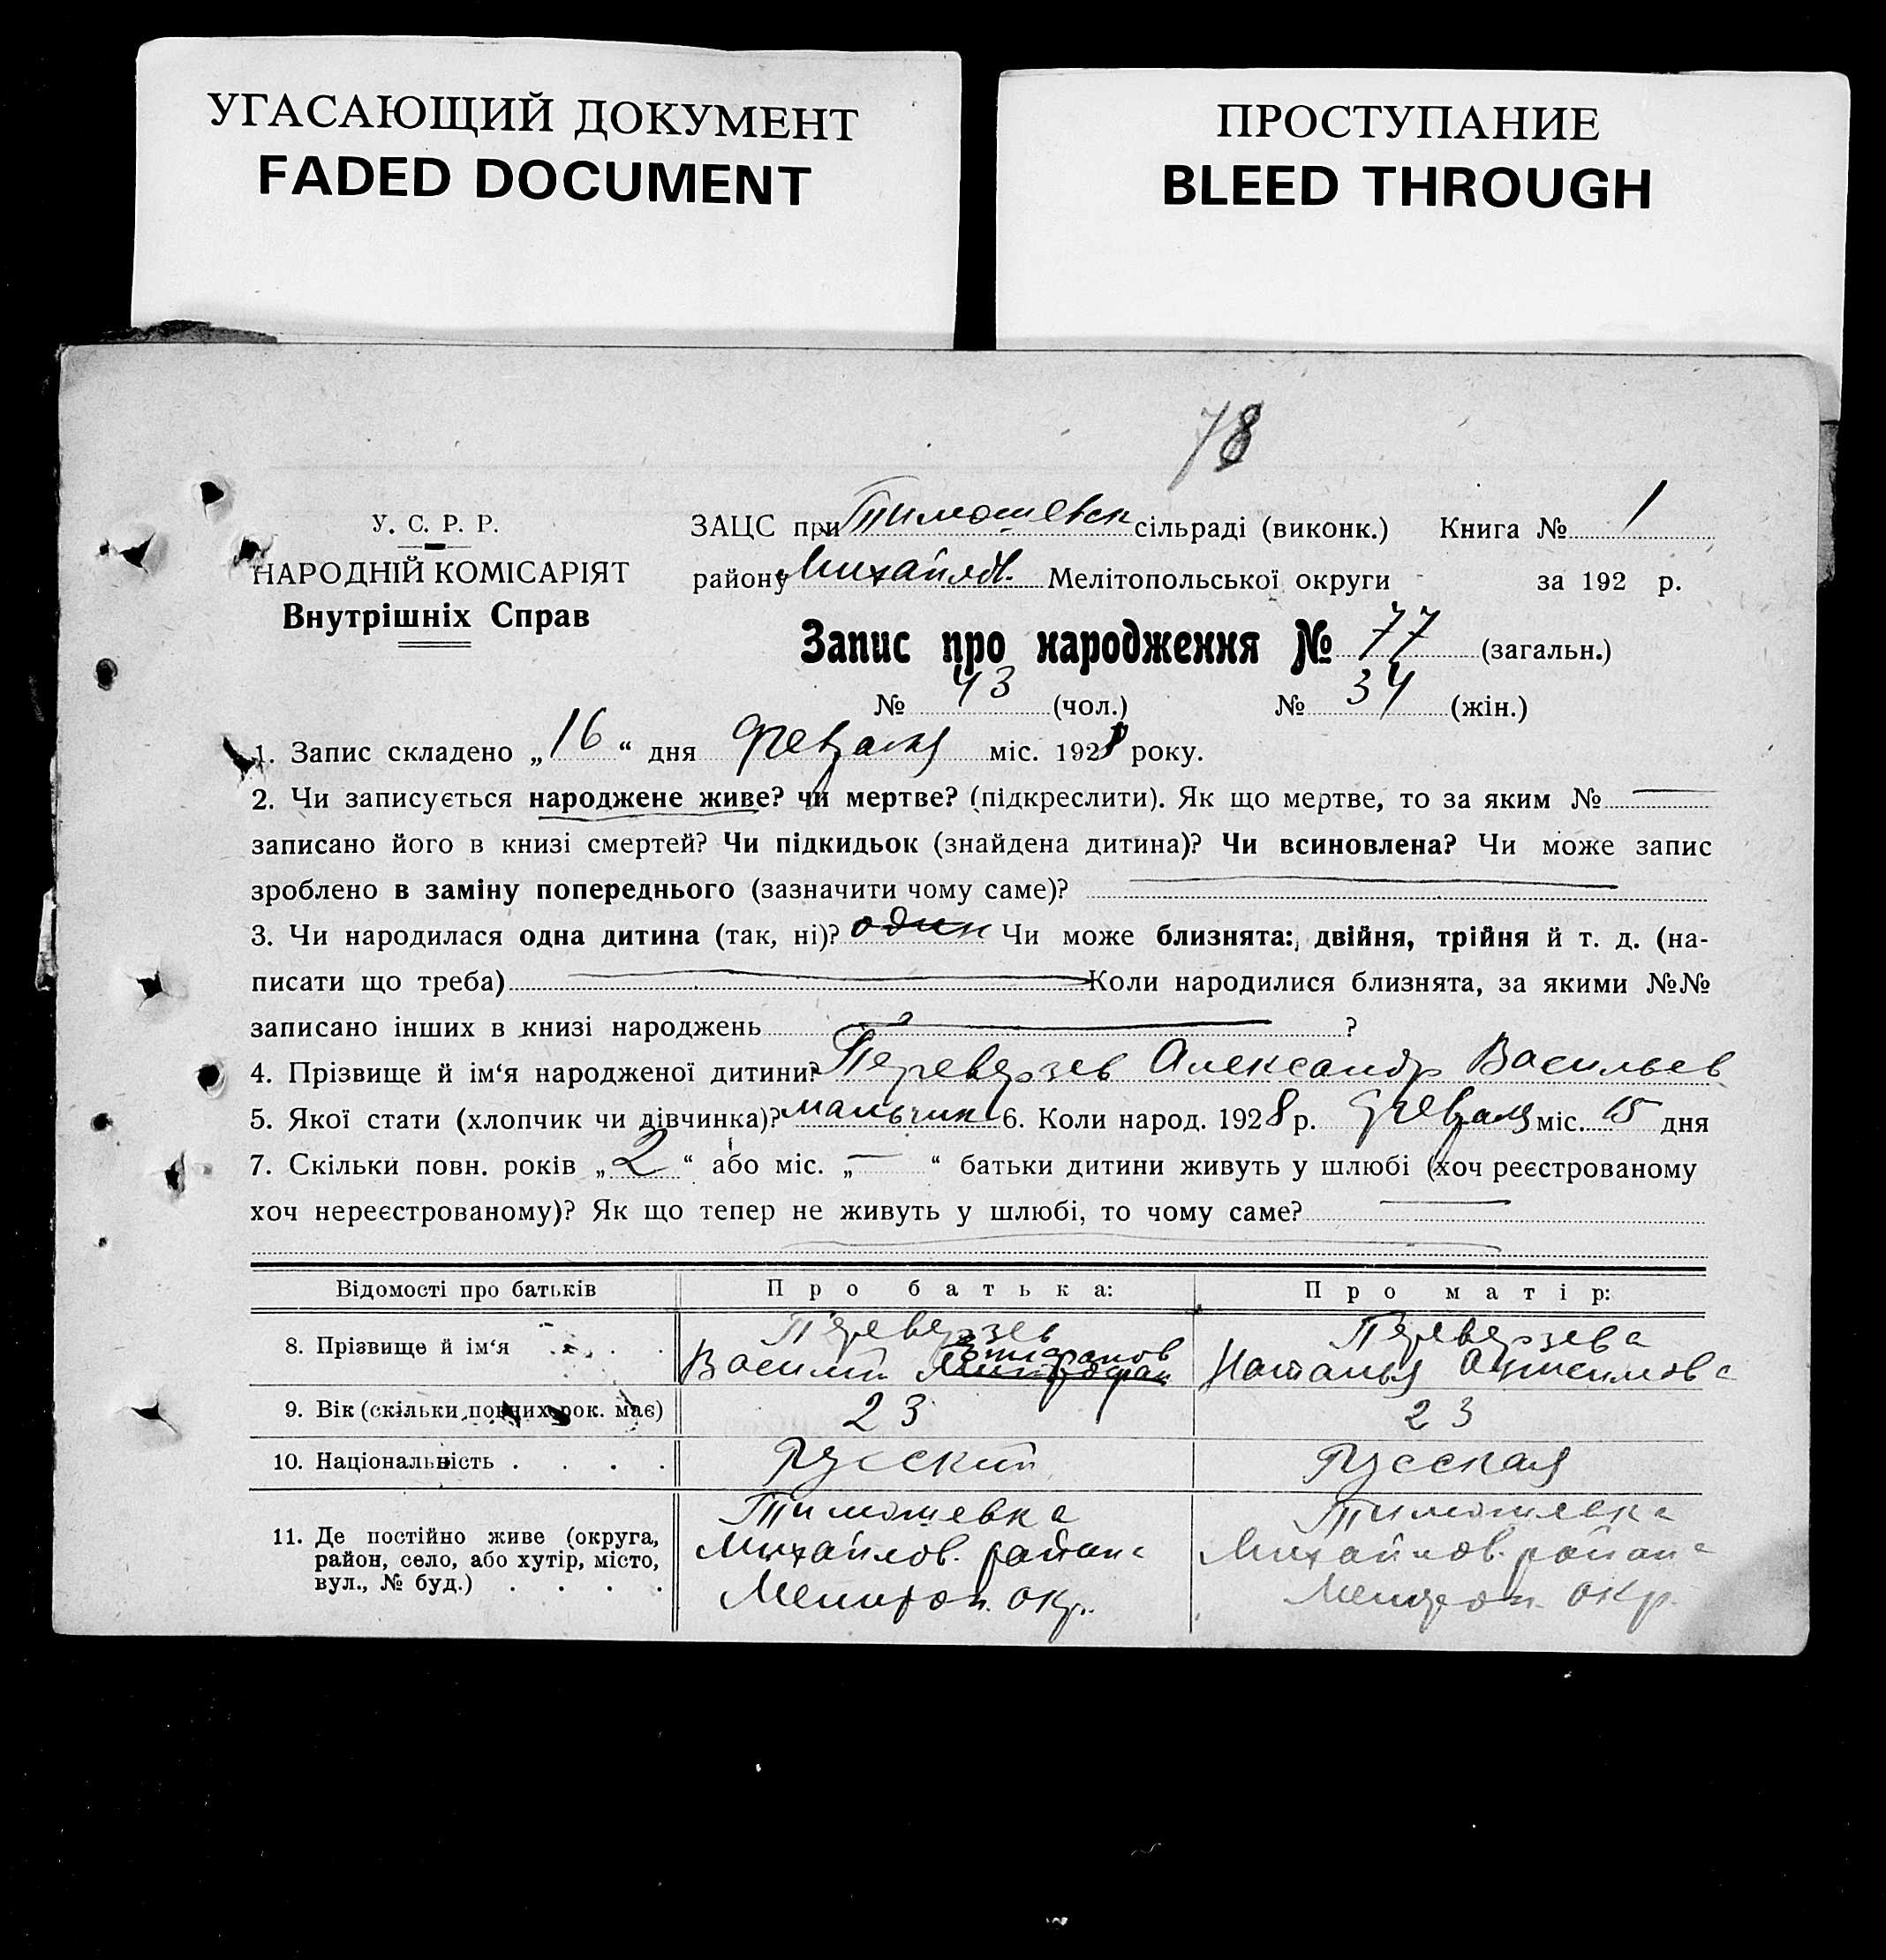 УГАСАЮЩИЙ ДОКУМЕНТ
FADED DOCUMENT
ПРОСТУПАНИЕ
BLEED THROUGH
78
У. С. Р. Р.
НАРОДНІЙ КОМІСАРІЯТ
Внутрішніх Справ
ЗАЦС при Тимошевск сільраді (виконк.) Книга № 1
району Михайлов. Мелітопольської округи за 192 р.
Запис про народження № 77 (загальн.)
№ 43 (чол.) № 34 (жін.)
1. Запис складено „16“ дня февраля міс. 1928 року.
2. Чи записується народжене живе? чи мертве? (підкреслити). Як що мертве, то за яким № —
записано його в книзі смертей? Чи підкидьок (знайдена дитина)? Чи всиновлена? Чи може запис
зроблено в заміну попереднього (зазначити чому саме)? —
3. Чи народилася одна дитина (так, ні)? один Чи може близнята: двійня, трійня й т. д. (на-
писати що треба) — Коли народилися близнята, за якими №№
записано інших в книзі народжень — ?
4. Прізвище й ім‘я народженої дитини? Переверзев Александр Васильев
5. Якої стати (хлопчик чи дівчинка)? мальчик 6. Коли народ. 1928 р. февраля міс. 15 дня
7. Скільки повн. років „2“ або міс. „—“ батьки дитини живуть у шлюбі (хоч реєстрованому
хоч нереєстрованому)? Як що тепер не живуть у шлюбі, то чому саме? —
Відомості про батьків Про батька: Про матір:
8. Прізвище й ім‘я . . . Переверзев Переверзева
Василий Митрофан Наталья Анисимова
9. Вік (скільки повних рок. має) 23 23
10. Національність . . . . Русский Русская
11. Де постійно живе (округа, район, село, або хутір, місто, вул., № буд.) . . . .
Тимошевка
Михайлов. района
Мелитоп. окр.
Тимошевка
Михайлов. района
Мелитоп. окр.